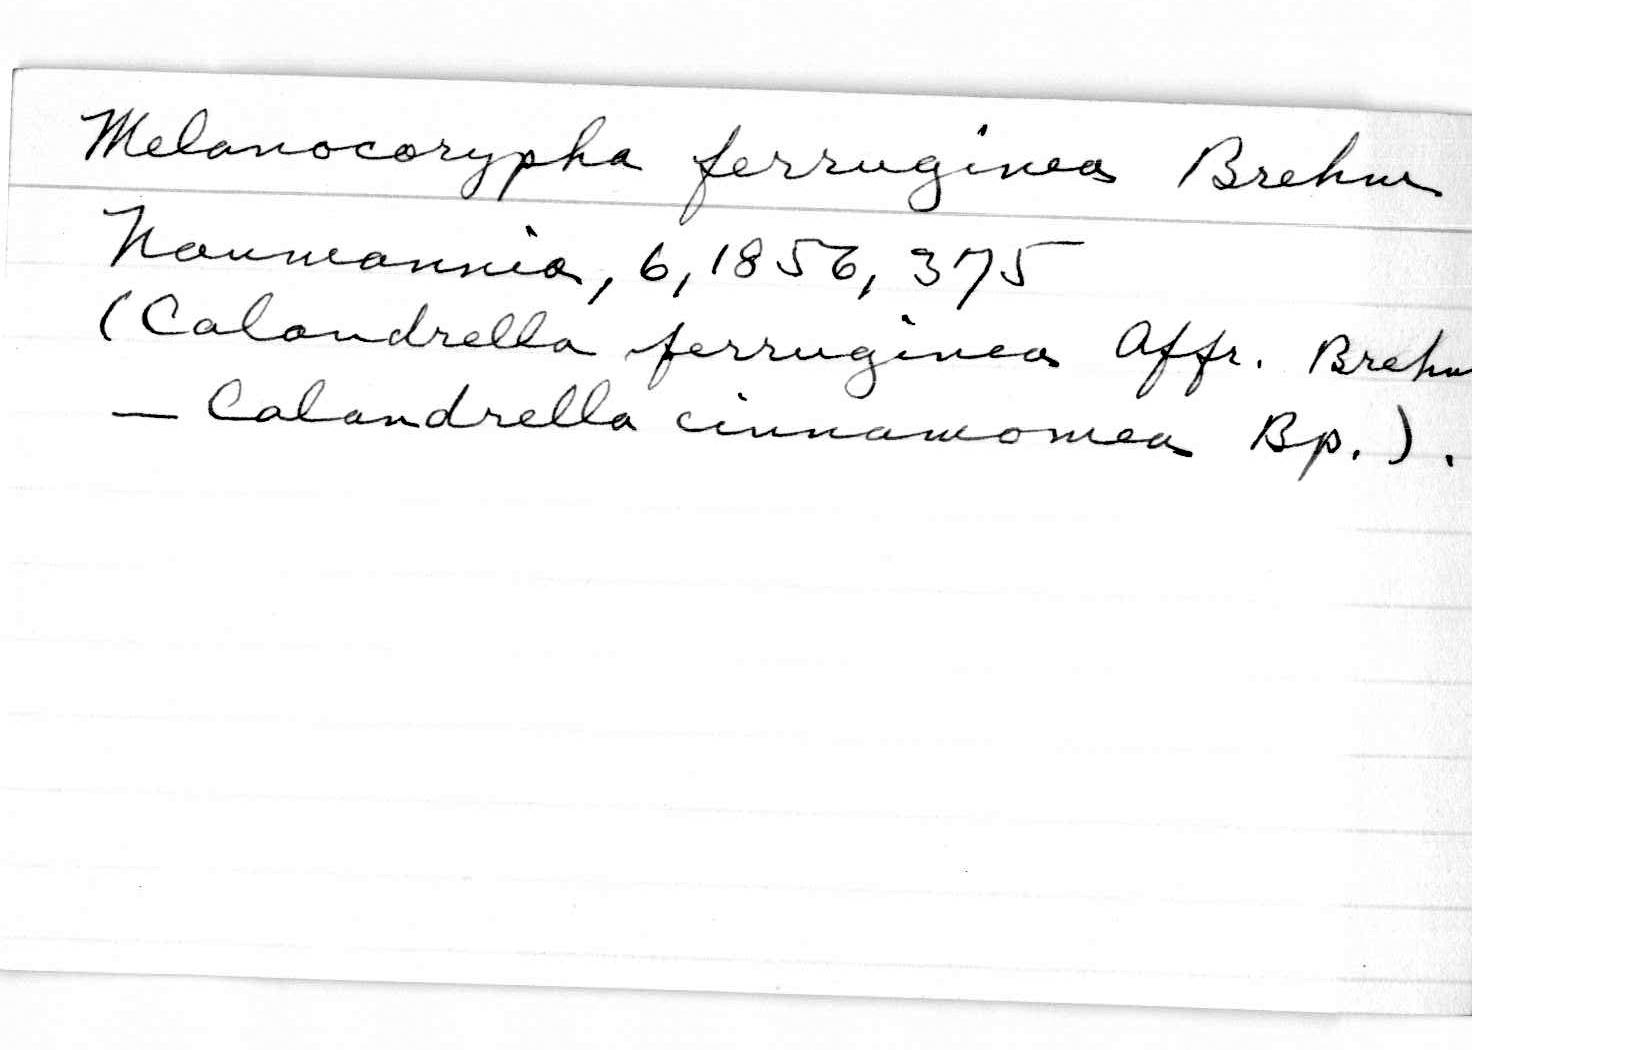 Melanocorypha ferruginea Brehm
Naumannia, 6, 1856, 375
(Calandrella ferruginea Affr. Brehm
— Calandrella cinnamomea Bp.).